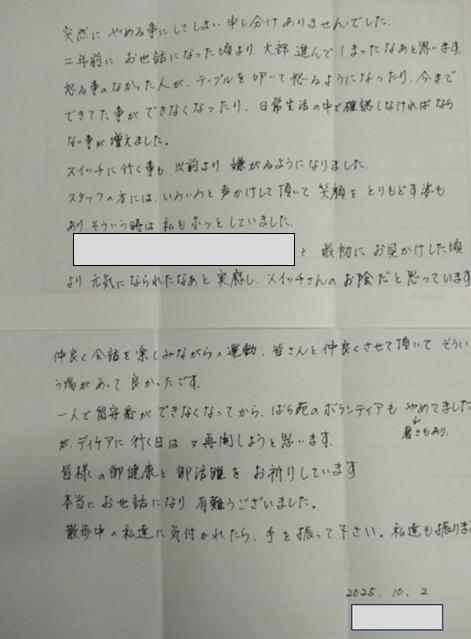 突然に やめる事にしてしまい申し分けありませんでした。
二年前に お世話になった頃より、大部進んで しまったなあと思います。
怒る事のなかった人が、テーブルを叩いて怒るようになったり、今まで
できてた事ができなくなったり、日常生活の中で確認しなければなら
ない事が増えました。
スイッチに行く事も以前より嫌がるようになりました。
スタッフの方には、いろいろと声かけして頂いて笑顔をとりもどす姿も
あり、そういう時は私もホッとしていました。
と 最初にお見かけした頃
より元気になられたなあと実感し、スイッチさんのお陰だと思っています
仲良く会話を楽しみながらの運動、皆さんと仲良くさせて頂いて そうい
う場があって良かったです。
一人で留守番ができなくなってから、ばら苑のボランティアも やめてました
暑さもあり、
が、デイケアに行く日は又再開しようと思います。
皆様の御健康と御活躍をお祈りしています
本当にお世話になり、有難うございました。
散歩中の私達に気付かれたら、手を振って下さい。私達も振りま
2025. 10. 2